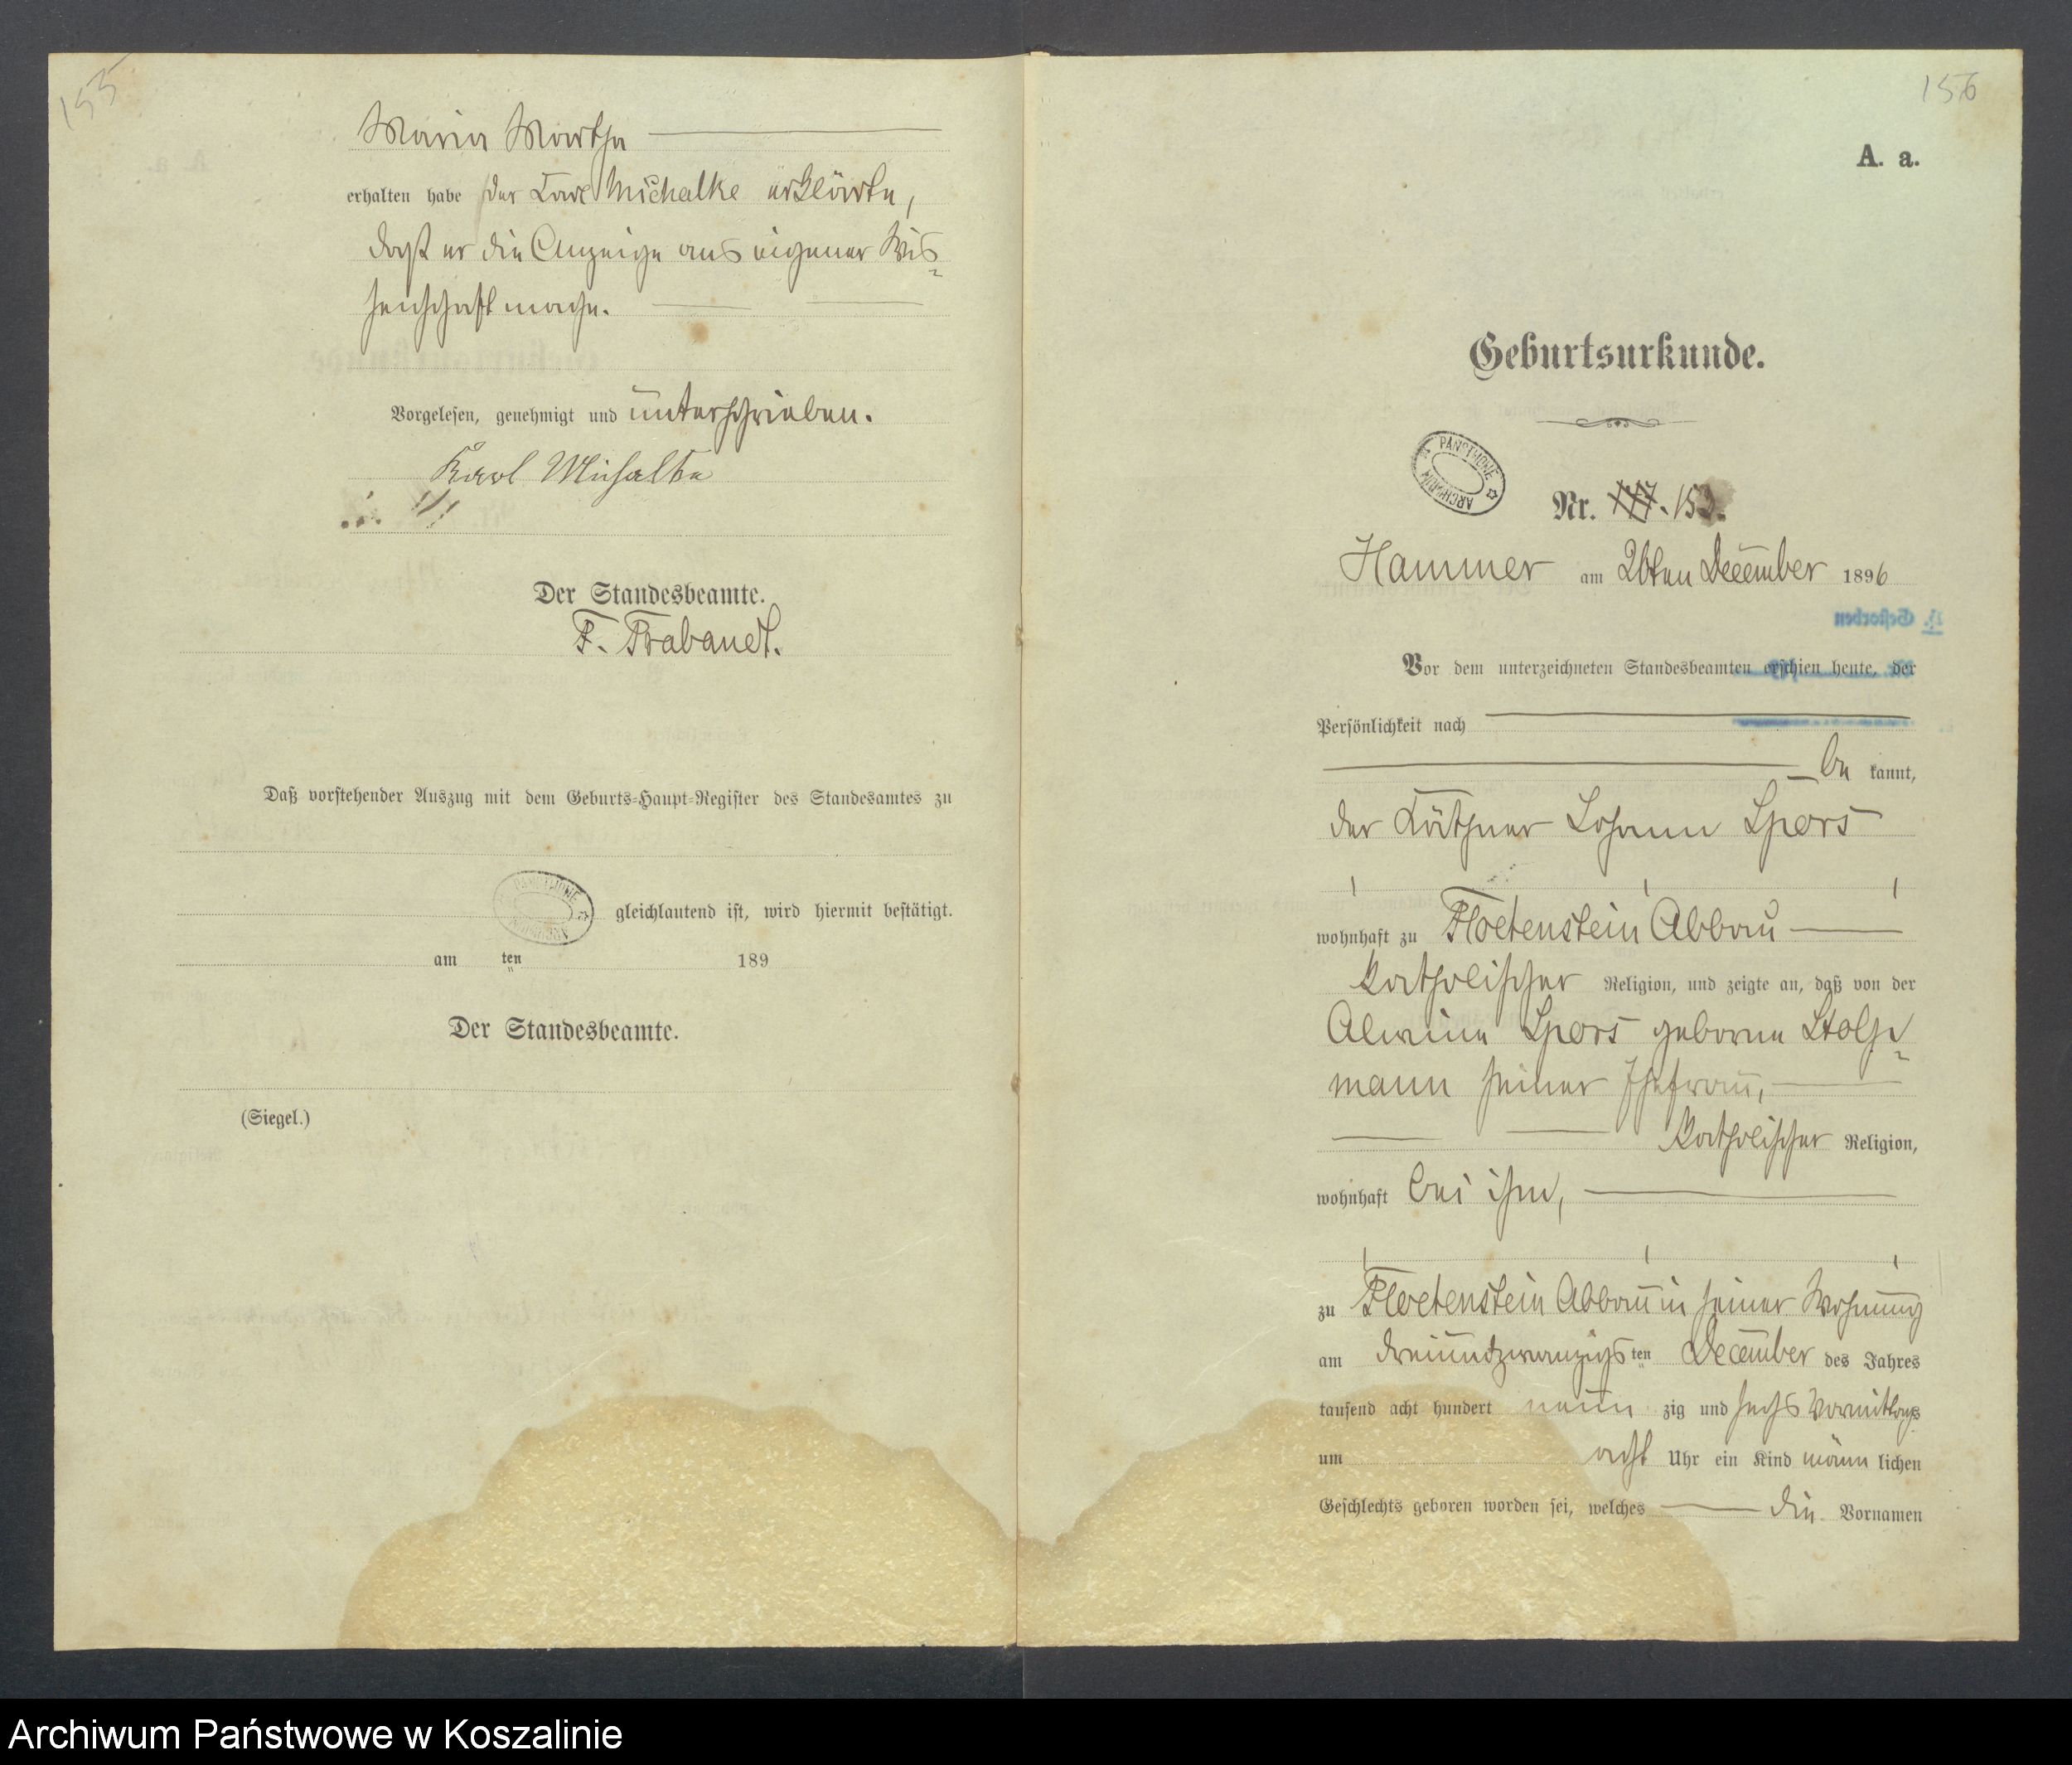 155
Maria Martha
erhalten habe der Karl Michalke erklärte,
daß er die Anzeige aus eigener Wis-
senschaft mache.
Vorgelesen, genehmigt und unterschrieben.
Karl Michalke
Der Standesbeamte.
F. Trabandt.
Daß vorstehender Auszug mit dem Geburts-Haupt-Register des Standesamtes zu
gleichlautend ist, wird hiermit bestätigt.
am ten 189
Der Standesbeamte.
(Siegel.)
156
A. a.
Geburtsurkunde.
ARCHIWUM PAŃSTWOWE
Nr. 152.
Hammer am 26ten December 1896
Gestorben
Vor dem unterzeichneten Standesbeamten erschien heute, der
Persönlichkeit nach
be kannt,
der Käthner Johann Spors
wohnhaft zu Floetenstein Abbau
katholischer Religion, und zeigte an, daß von der
Alwine Spors geborne Stolp-
mann seiner Ehefrau,
katholischer Religion,
wohnhaft bei ihm,
zu Floetenstein Abbau in seiner Wohnung
am dreiundzwanzigsten December des Jahres
tausend acht hundert neun zig und sechs Vormittags
um acht Uhr ein Kind männ lichen
Geschlechts geboren worden sei, welches die Vornamen
Archiwum Państwowe w Koszalinie